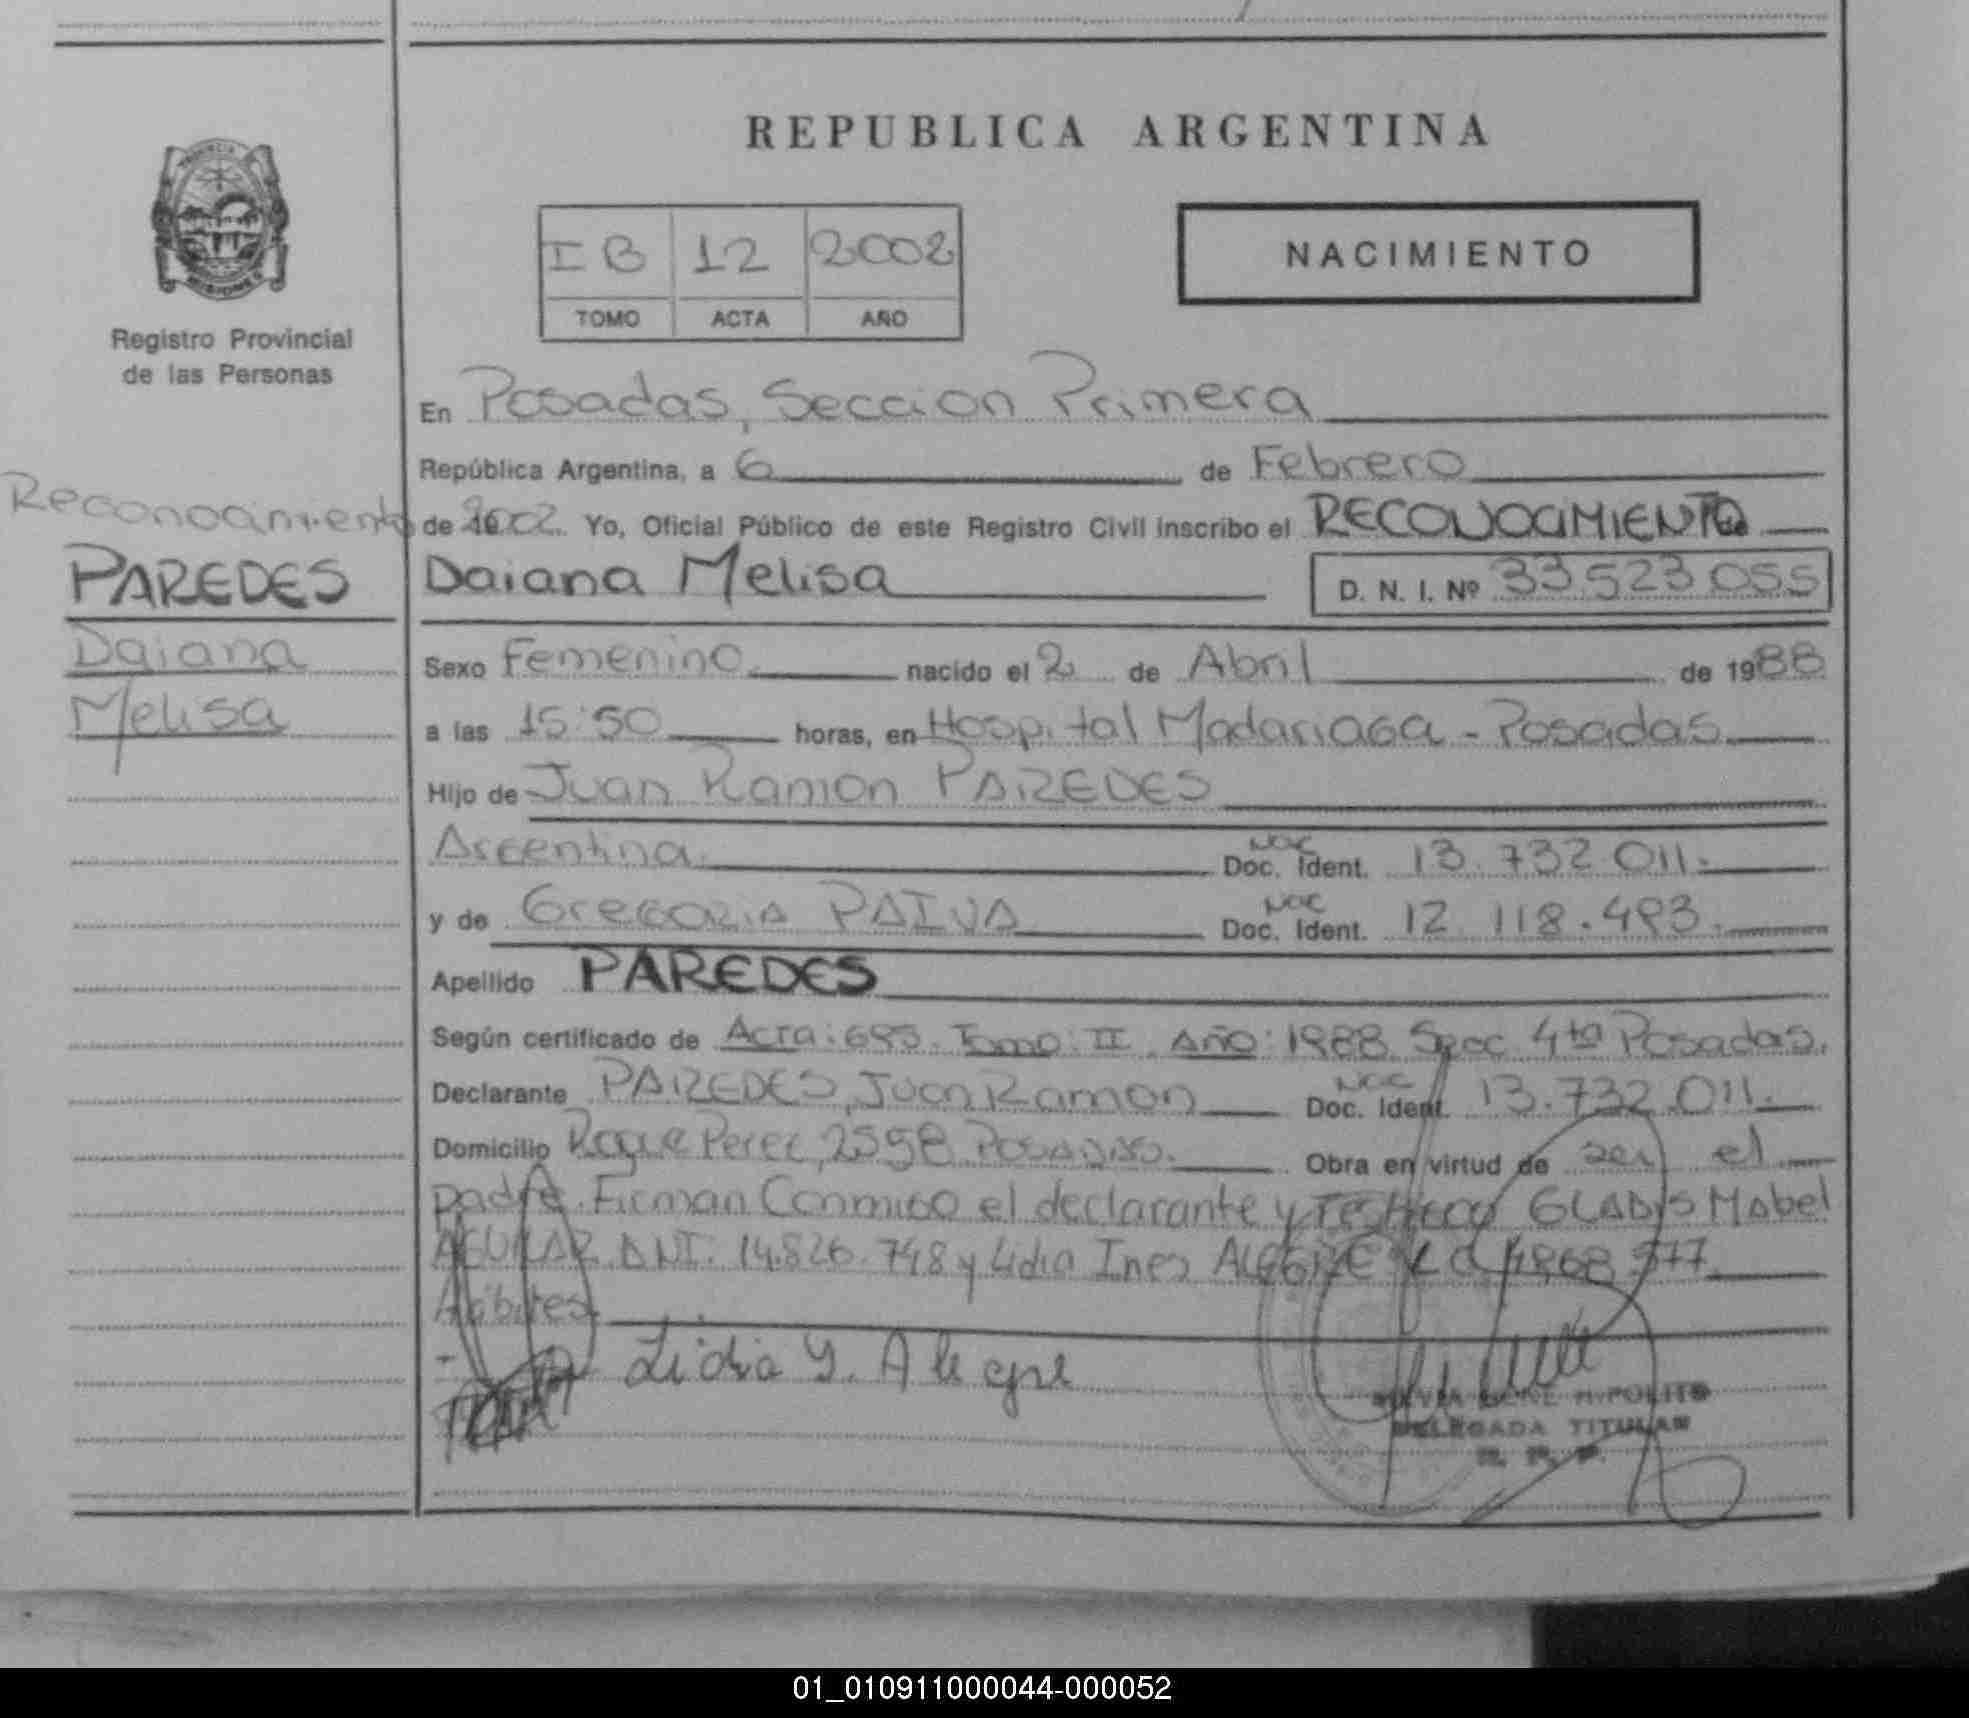 REPUBLICA ARGENTINA
PROVINCIA
MISIONES
Registro Provincial
de las Personas
I B 12 2002
TOMO ACTA AÑO
NACIMIENTO
En Posadas, Seccion Primera
República Argentina, a 6 de Febrero
Reconocimiento
de 2002. Yo, Oficial Público de este Registro Civil inscribo el RECONOCIMIENTO de
PAREDES
Daiana
Melisa
Daiana Melisa D. N. I. Nº 33 523 055
Sexo Femenino nacido el 2 de Abril de 1988
a las 15:50 horas, en Hospital Madariaga - Posadas
Hijo de Juan Ramon PAREDES
Argentina. Nac Doc. Ident. 13.732 011.
y de Gregoria PAIVA Nac Doc. Ident. 12 118.493.
Apellido PAREDES
Según certificado de Acta: 695. Tomo: II. Año: 1988 Secc 4ta Posadas.
Declarante PAREDES, Juan Ramon Nac Doc. Ident. 13.732.011.
Domicilio Roque Perez 2598 Posadas. Obra en virtud de ser el
padre. Firman Conmigo el declarante y testigos GLADyS Mabel
AGUILAR DNI. 14.826.748 y Lidia Ines ALEGRE LC 4868 577
Habites
Lidia Y. Alegre
HIPOLITO
DELEGADA TITULAR
R. P. P.
01_010911000044-000052